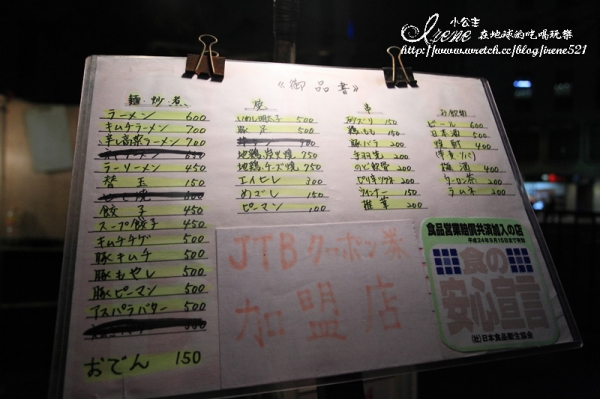 小公主
Irene 在地球的吃喝玩樂
http://www.wretch.cc/blog/irene521
《御品書》
麺・炒・煮
ラーメン 600
キムチラーメン 700
辛し高菜ラーメン 700
ラーメン 450
替玉 150
餃子 450
スープ餃子 450
キムチチゲ 500
豚キムチ 500
豚もやし 500
豚ピーマン 500
アスパラバター 500
おでん 150
焼
いわし明太子 500
豚足 500
地鶏炭火焼 750
地鶏チーズ焼 750
エイヒレ 300
めざし 150
ピーマン 100
串
砂ズリ 150
鶏もも 150
豚バラ 200
200
200
200
ウインナー 200
椎茸 200
お飲物
ビール 600
日本酒 500
焼酎 400
(芋・麦)
梅酒 400
ウーロン茶 200
ラムネ 200
JTBクーポン券
加盟店
食品営業賠償共済加入の店
平成24年9月15日まで有効
食の
安心宣言
(社)日本食品衛生協会